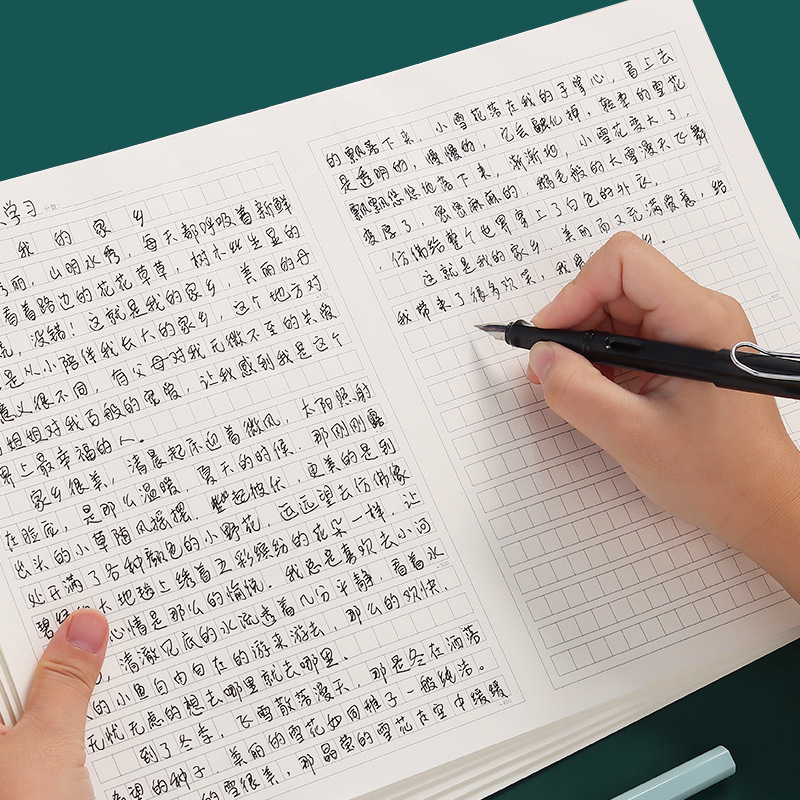 学习
我的家乡
秀丽，山明水秀，每天都呼吸着新鲜
看着路边的花花草草，树木此生显的
，没错！这就是我的家乡，美丽的母
是从小陪伴我长大的家乡，这个地方对
意义很不同，有父母对我无微不至的关爱
姐姐对我百般的宠爱，让我感到我是这个
界上最幸福的人。
家乡很美，清晨起床迎着微风，太阳照射
在脸庞，是那么温暖，夏天的时候，那刚刚露
出头的小草随风摇摆，起彼伏，更美的是到
处开满了各种颜色的小野花，远远望去仿佛像
碧绿大地毯上绣着五彩缤纷的花朵一样，让
心情是那么的愉悦。我总是喜欢去小河
，清澈见底的水流透着几分平静，看着水
的小鱼自由自在的游来游去，那么的欢快，
无忧无虑的想去哪里就去哪里。
到了冬季，飞雪散落漫天，那是冬在洒落
希望的种子，美丽的雪花如同稚子一般纯洁。
的雪很美，那晶莹的雪花在空中缓缓
的飘落下来，小雪花落在我的手掌心，看上去
是透明的，慢慢的，它会融化掉，轻柔的雪花
飘飘悠悠地落下来，渐渐地，小雪花变大了，
变厚了，密密麻麻的，鹅毛般的大雪漫天飞舞
，仿佛给整个世界穿上了白色的外衣。
这就是我的家乡，美丽而又充满爱意，给
我带来了很多欢笑，我乡。